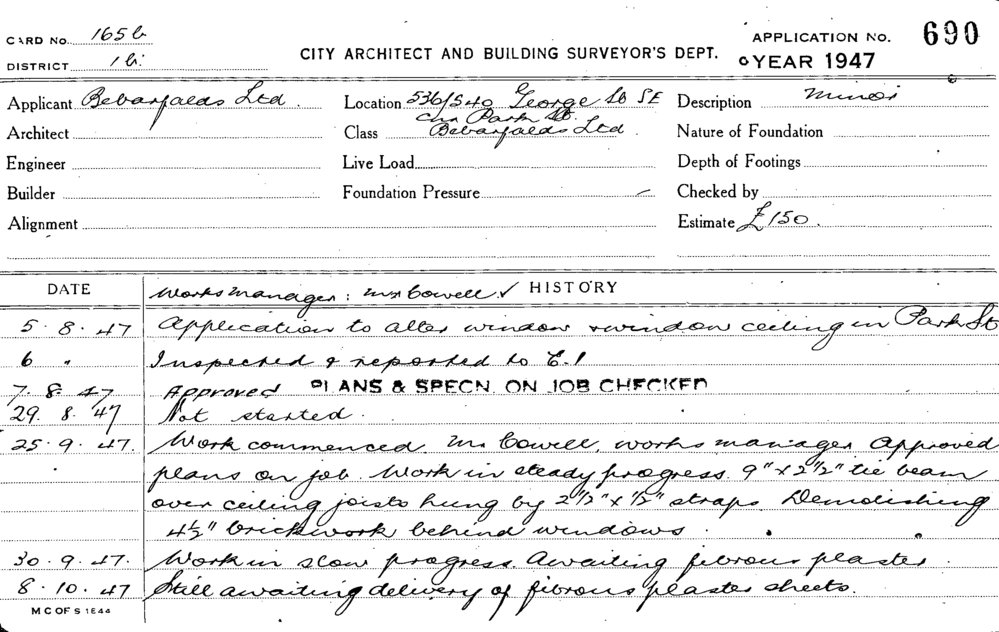 CARD NO. 165b
DISTRICT 1b
CITY ARCHITECT AND BUILDING SURVEYOR'S DEPT.
APPLICATION NO. 690
YEAR 1947
Applicant Bebarfalds Ltd
Location 536/540 George St SE
cnr Park St.
Description Minor
Architect
Class Bebarfalds Ltd
Nature of Foundation
Engineer
Live Load
Depth of Footings
Builder
Foundation Pressure
Checked by
Alignment
Estimate £150.
DATE
HISTORY
Works manager: Mr Cowell
5.8.47 Application to alter window & window ceiling in Park St
6 " Inspected & reported to E.1
7.8.47 Approved PLANS & SPECN. ON JOB CHECKED
29.8.47 Not started.
25.9.47. Work commenced. Mr Cowell, works manager. Approved
plans on job. Work in steady progress. 9" x 2½" tie beam
over ceiling joists hung by 2½" x ½" straps. Demolishing
4½" brickwork behind windows.
30.9.47. Work in slow progress. Awaiting fibrous plaster.
8.10.47 Still awaiting delivery of fibrous plaster sheets.
M C OF S 1844